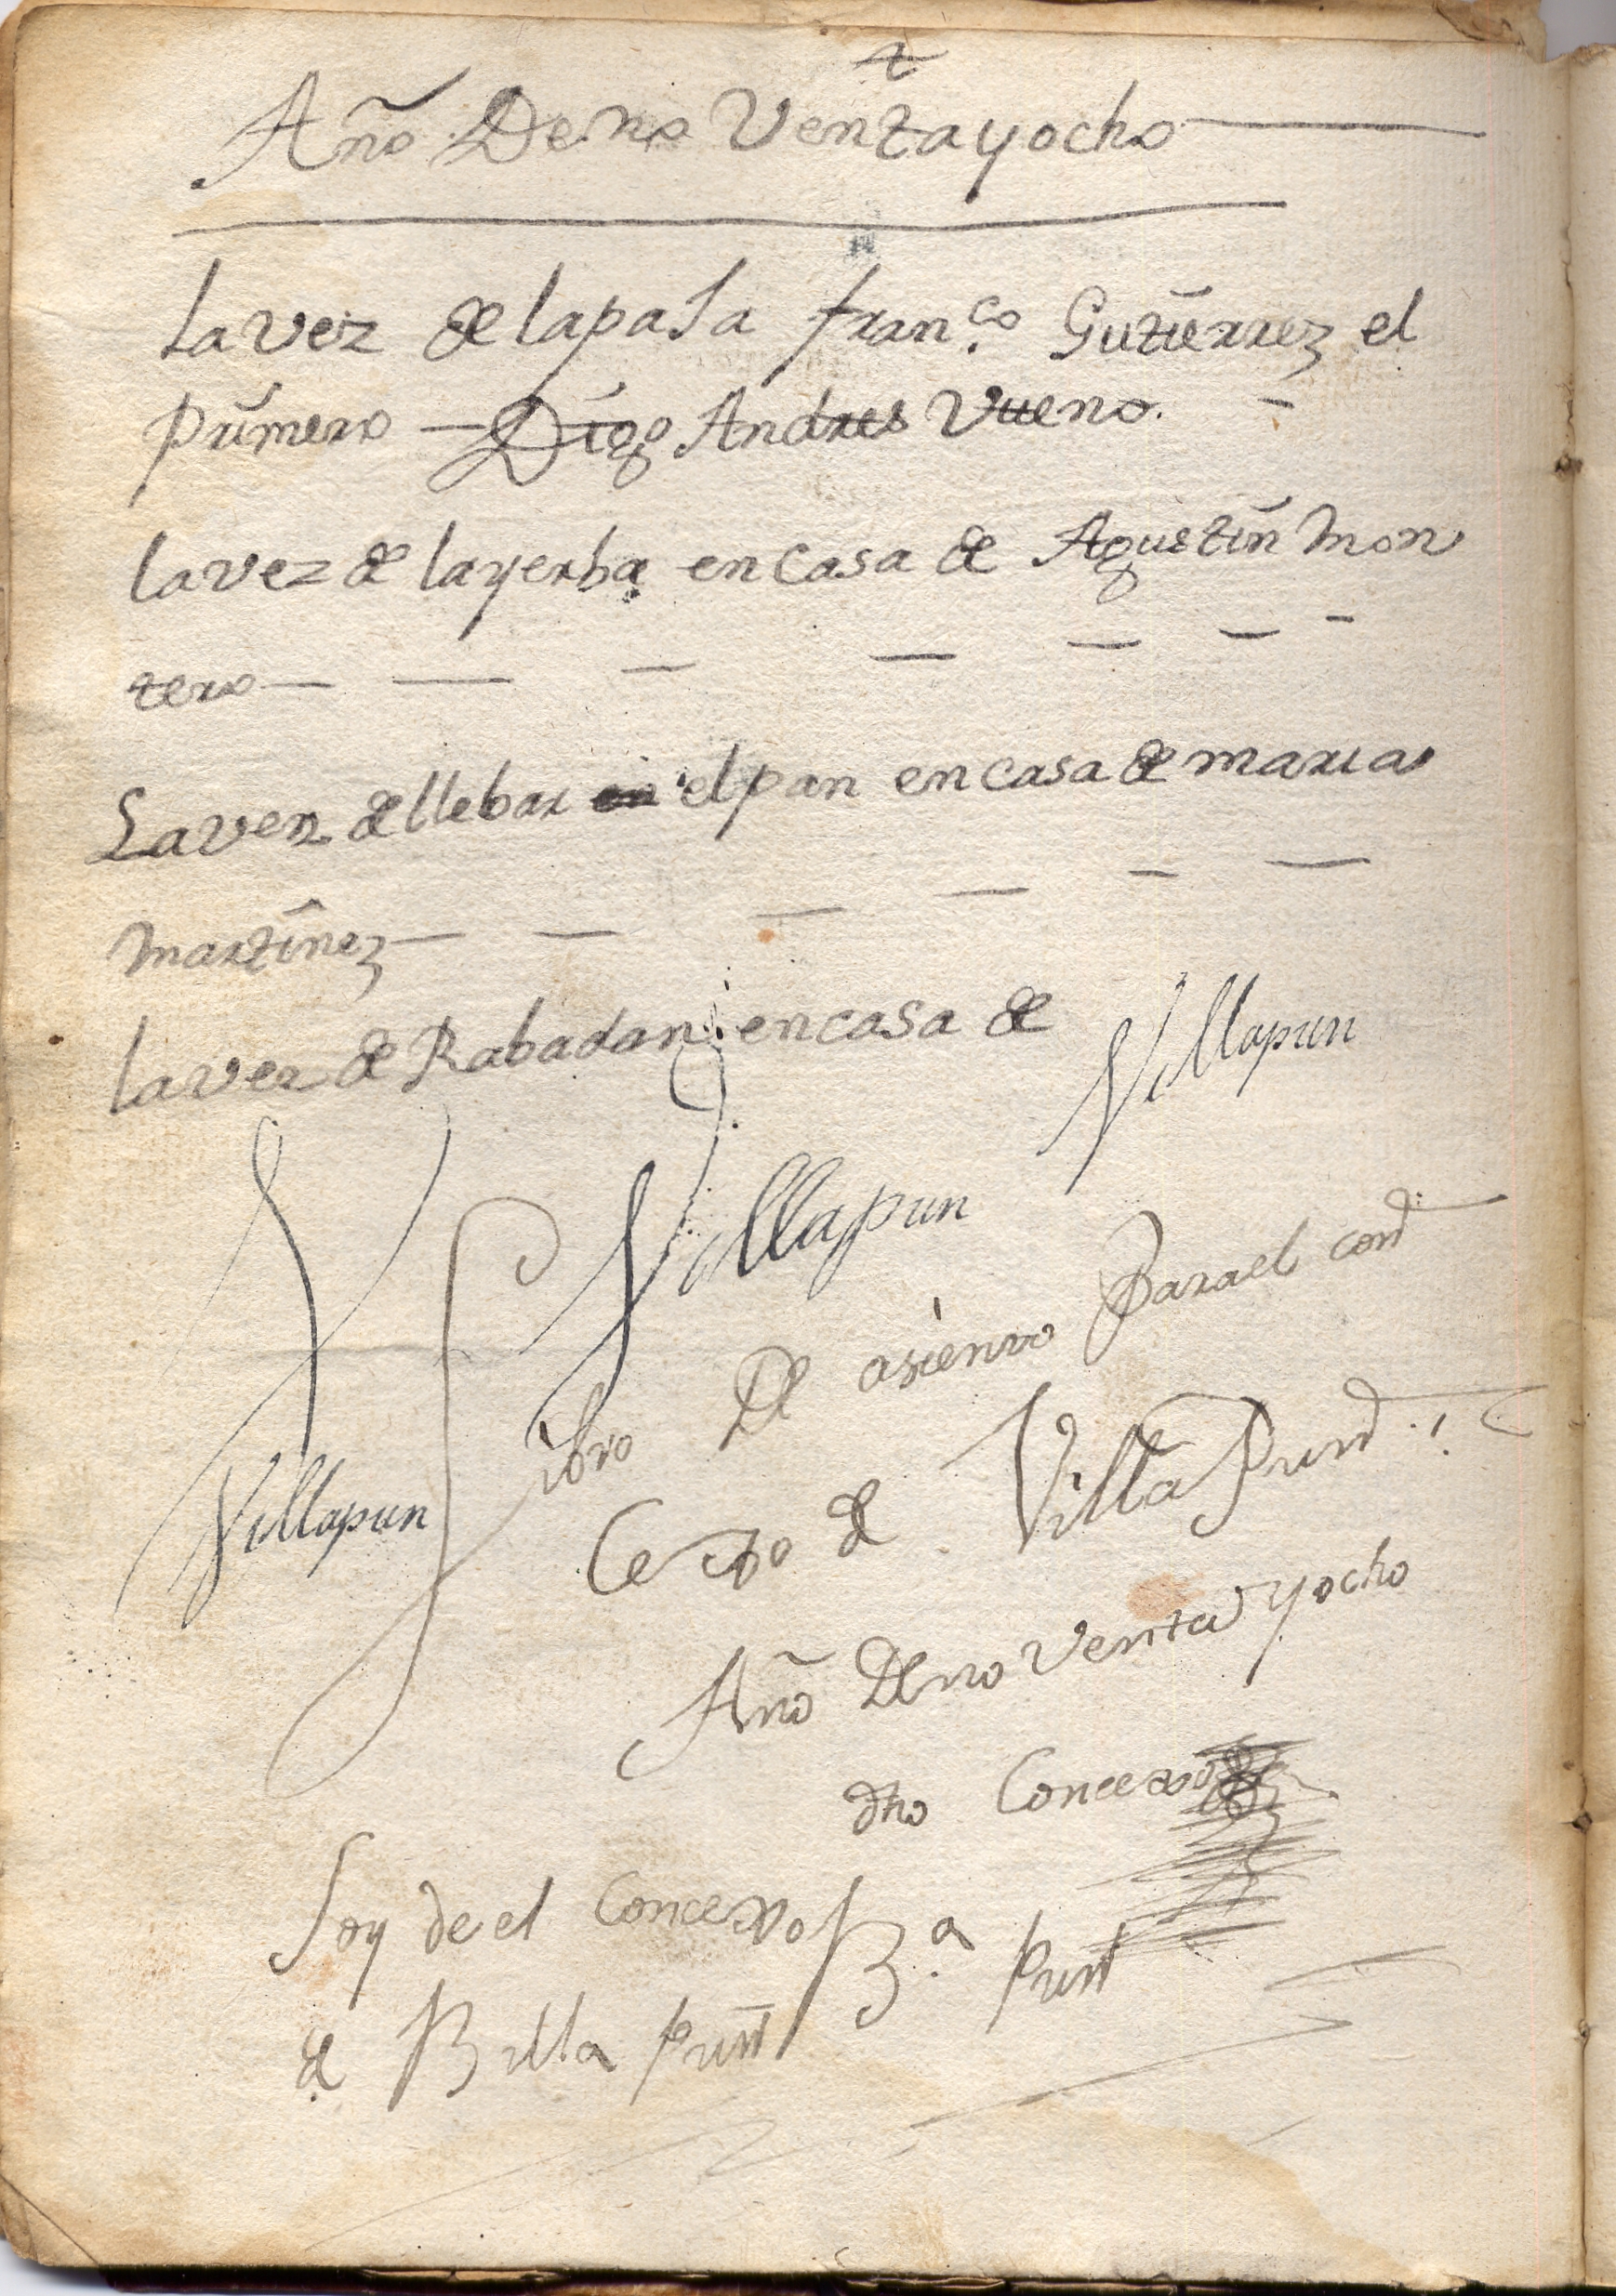 Año De no Ventayocho
la vez de la pasa fran.co Gutierrez el
primero — Digo Andres Vueno. -
la vez de la yerba en casa de Agustin Mon
tero — — — — — — -
La vez de llebar el pan en casa de maria
Martinez — — — — — —
la vez de Rabadan en casa de
Villapun
Villapun
Libro De asiento Para el con
Villapun
Cexo de Villa Pun
Año De no Venta Yocho
dho Concexo
Soy de el Concexo B.a Pun
de Billa Pun